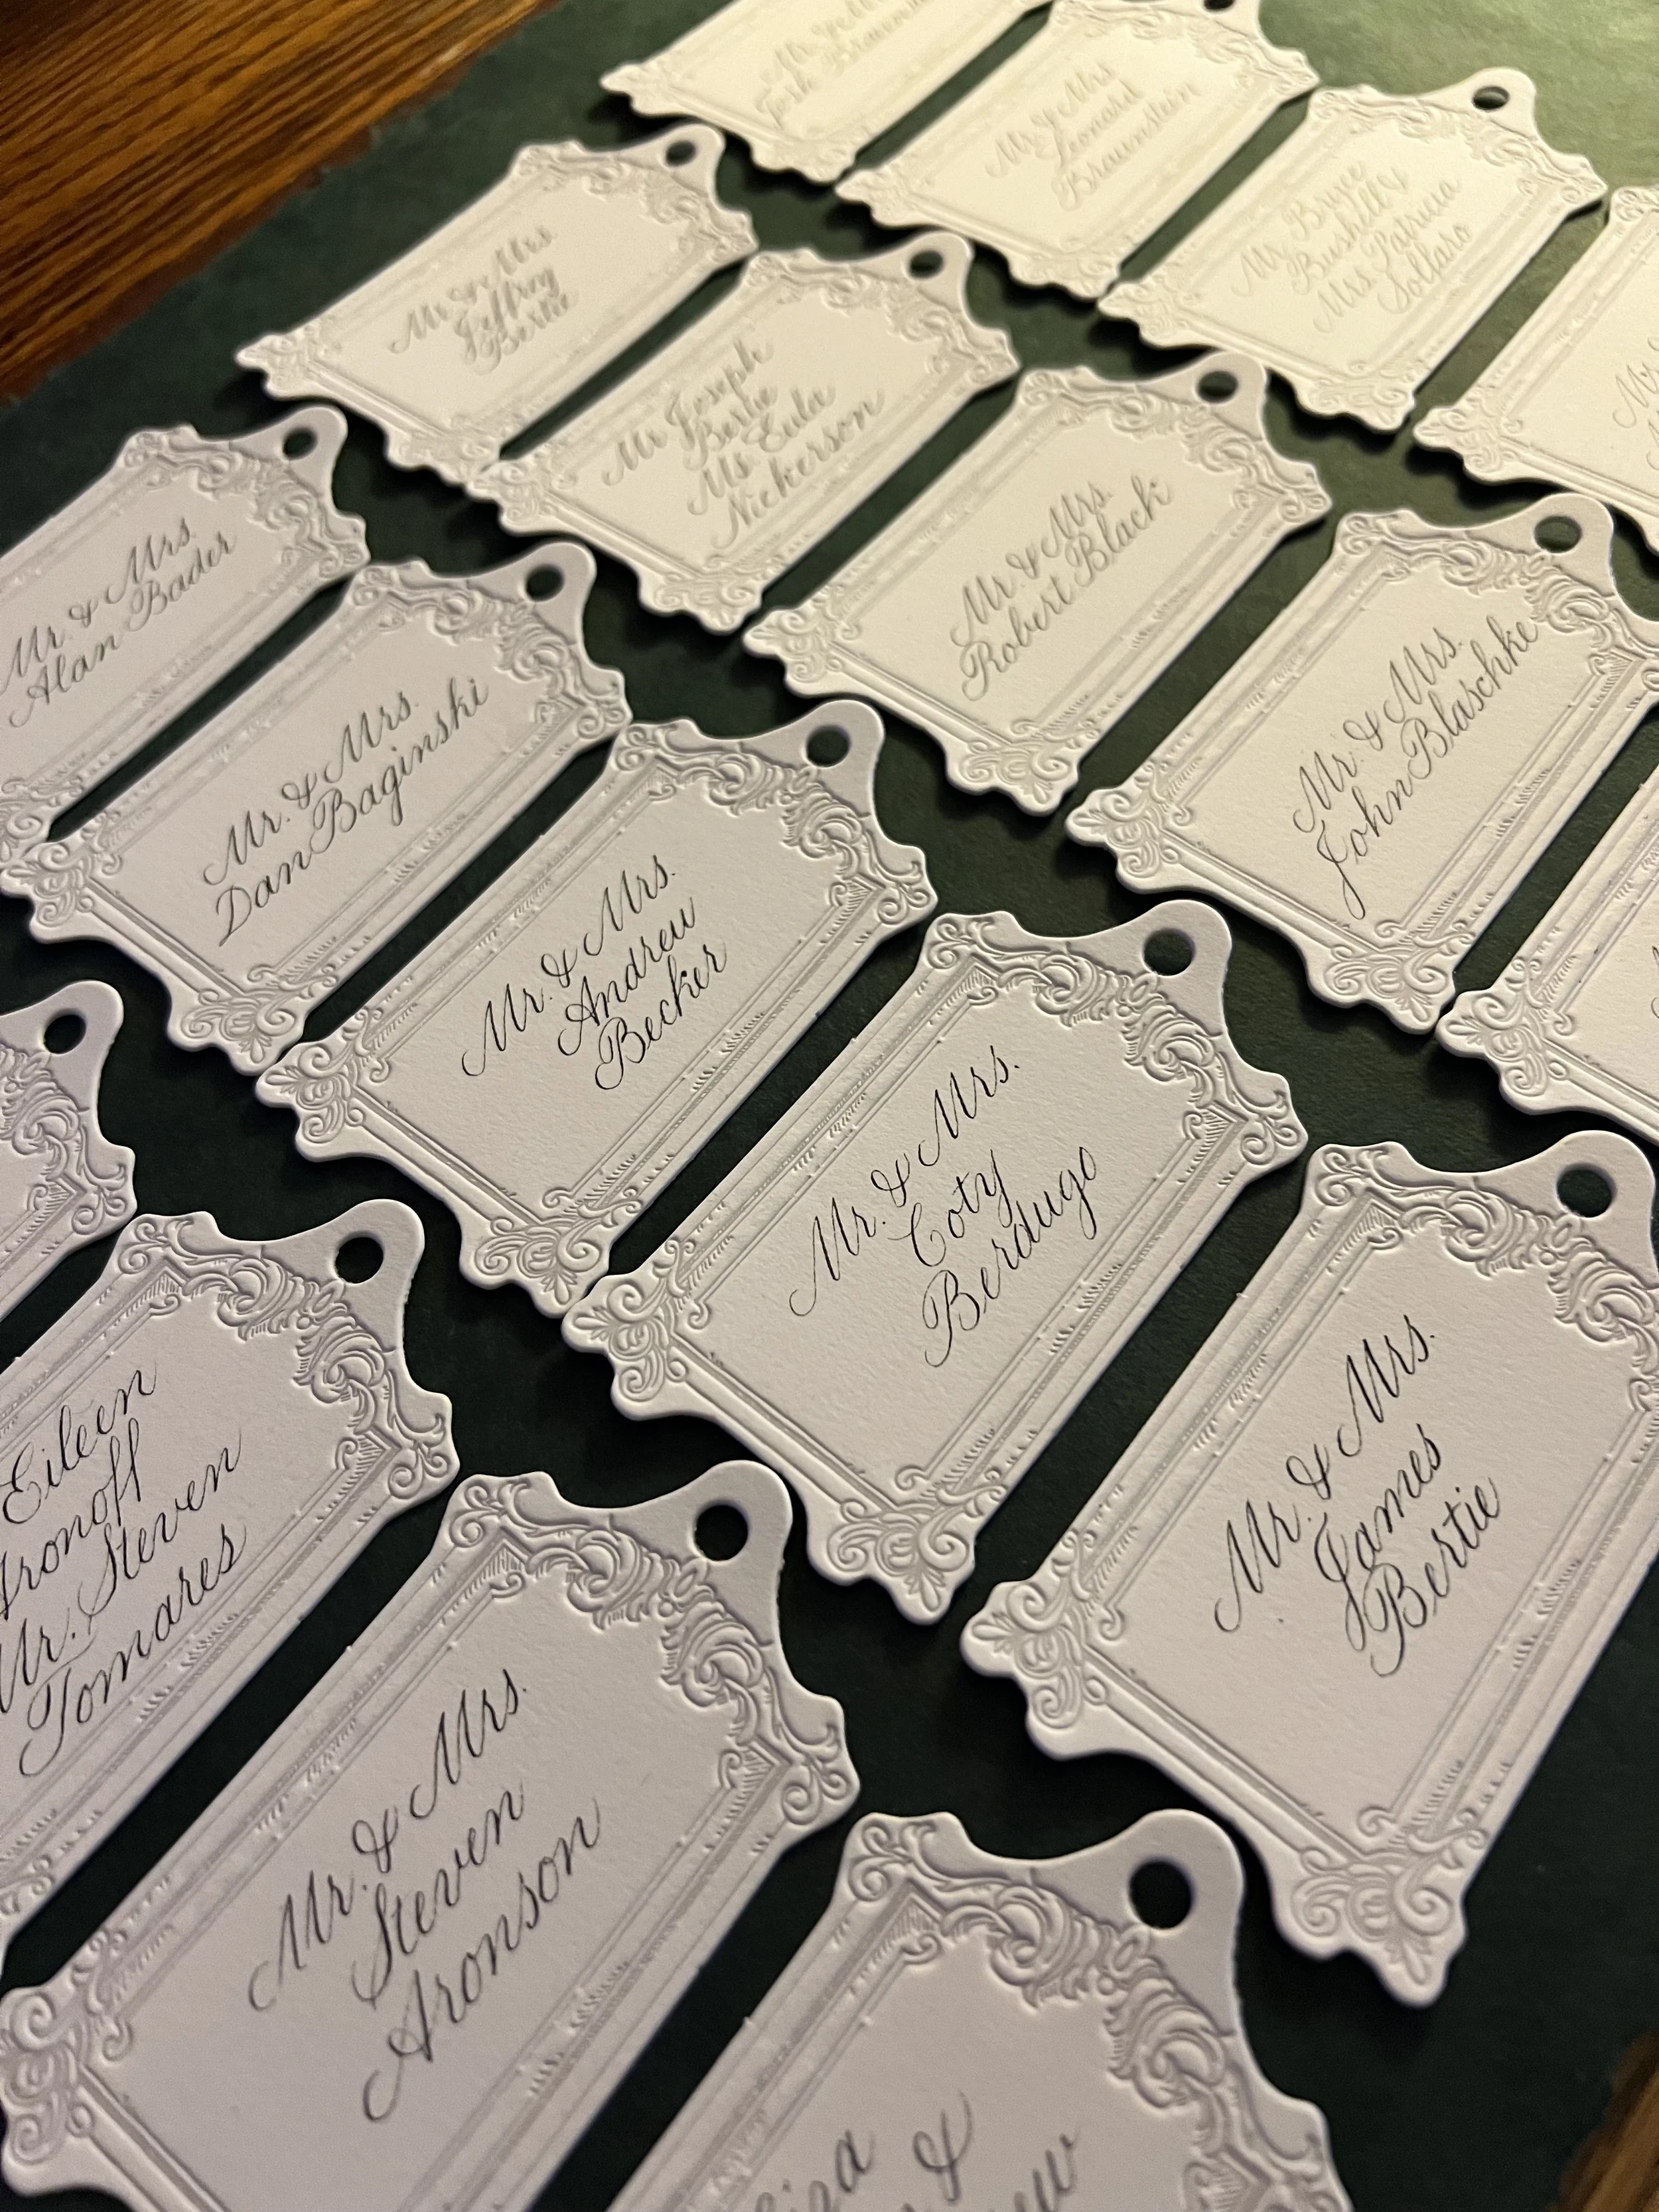 Mr. & Mrs.
Leonard
Braunstein
Mr. Bruce
Bushell
Mrs Patricia
Sollaro
Mr & Mrs.
Jeffrey
Bertie
Mr Joseph
Bertie
Ms. Eula
Nickerson
Mr. & Mrs.
Robert Black
Mr. & Mrs.
John Blaschke
Mr. & Mrs.
Alan Bader
Mr. & Mrs.
Dan Baginski
Mr. & Mrs.
Andrew
Becker
Mr. & Mrs.
Coty
Berdugo
Mr. & Mrs.
James
Bertie
Eileen
Aronoff
Mr. Steven
Tomares
Mr. & Mrs.
Steven
Aronson
&